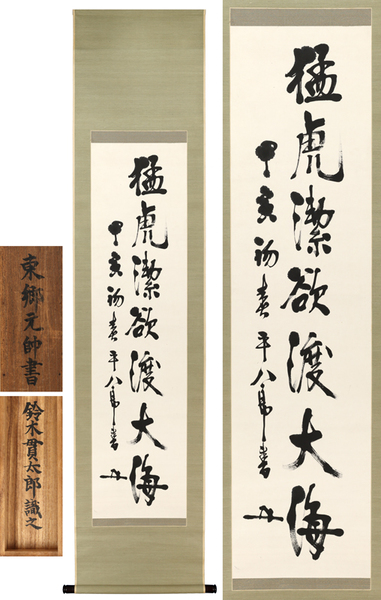 東郷元帥書
鈴木貫太郎識之
猛虎潔欲渡大海
甲亥初春平八郎書
猛虎潔欲渡大海
甲亥初春平八郎書